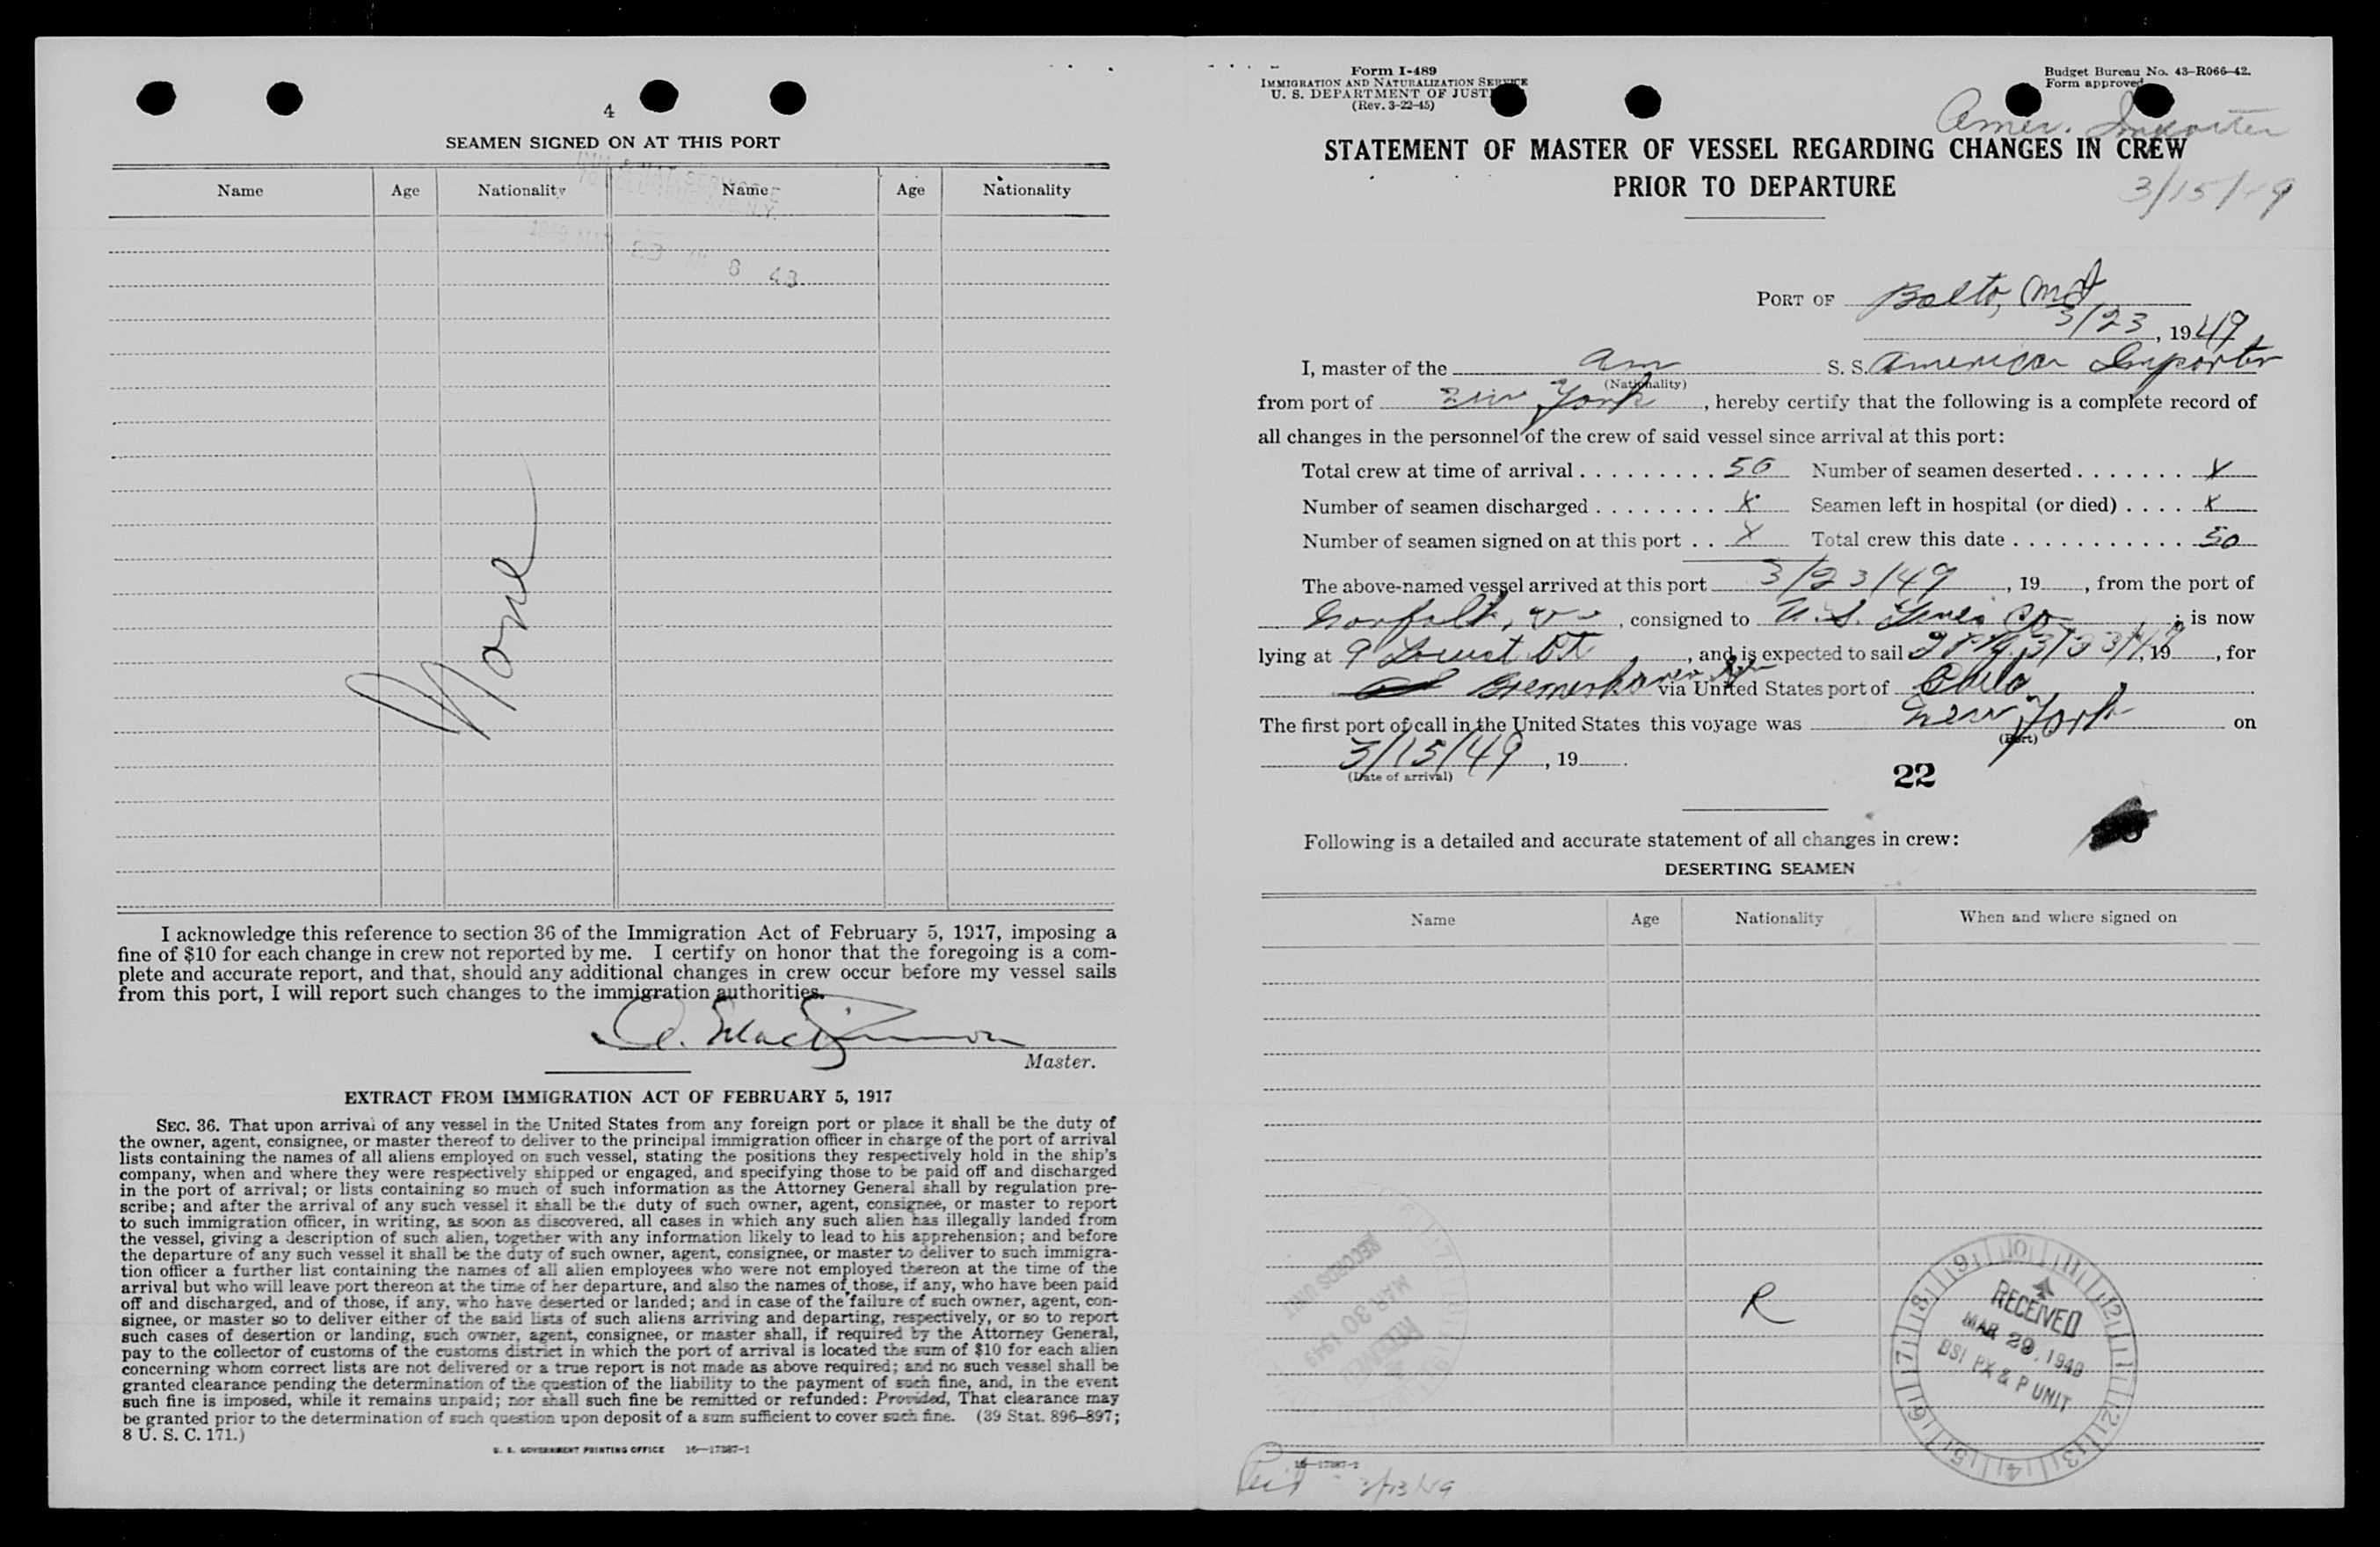 4
SEAMEN SIGNED ON AT THIS PORT
Name Age Nationality Name Age Nationality
23 8 48
None
I acknowledge this reference to section 36 of the Immigration Act of February 5, 1917, imposing a
fine of $10 for each change in crew not reported by me. I certify on honor that the foregoing is a com-
plete and accurate report, and that, should any additional changes in crew occur before my vessel sails
from this port, I will report such changes to the immigration authorities.
Master.
EXTRACT FROM IMMIGRATION ACT OF FEBRUARY 5, 1917
SEC. 36. That upon arrival of any vessel in the United States from any foreign port or place it shall be the duty of
the owner, agent, consignee, or master thereof to deliver to the principal immigration officer in charge of the port of arrival
lists containing the names of all aliens employed on such vessel, stating the positions they respectively hold in the ship's
company, when and where they were respectively shipped or engaged, and specifying those to be paid off and discharged
in the port of arrival; or lists containing so much of such information as the Attorney General shall by regulation pre-
scribe; and after the arrival of any such vessel it shall be the duty of such owner, agent, consignee, or master to report
to such immigration officer, in writing, as soon as discovered, all cases in which any such alien has illegally landed from
the vessel, giving a description of such alien, together with any information likely to lead to his apprehension; and before
the departure of any such vessel it shall be the duty of such owner, agent, consignee, or master to deliver to such immigra-
tion officer a further list containing the names of all alien employees who were not employed thereon at the time of the
arrival but who will leave port thereon at the time of her departure, and also the names of those, if any, who have been paid
off and discharged, and of those, if any, who have deserted or landed; and in case of the failure of such owner, agent, con-
signee, or master so to deliver either of the said lists of such aliens arriving and departing, respectively, or so to report
such cases of desertion or landing, such owner, agent, consignee, or master shall, if required by the Attorney General,
pay to the collector of customs of the customs district in which the port of arrival is located the sum of $10 for each alien
concerning whom correct lists are not delivered or a true report is not made as above required; and no such vessel shall be
granted clearance pending the determination of the question of the liability to the payment of such fine, and, in the event
such fine is imposed, while it remains unpaid; nor shall such fine be remitted or refunded: Provided, That clearance may
be granted prior to the determination of such question upon deposit of a sum sufficient to cover such fine. (39 Stat. 896–897;
8 U. S. C. 171.)
U. S. GOVERNMENT PRINTING OFFICE 16—17387-1
Form I-489
IMMIGRATION AND NATURALIZATION SERVICE
U. S. DEPARTMENT OF JUST
(Rev. 3-22-45)
Budget Bureau No. 43–R066–42.
Form approved
Amer. Importer
STATEMENT OF MASTER OF VESSEL REGARDING CHANGES IN CREW
PRIOR TO DEPARTURE
3/15/49
PORT OF Balto, Md
3/23, 1949
I, master of the Am S. S. American Importer
(Nationality)
from port of New York, hereby certify that the following is a complete record of
all changes in the personnel of the crew of said vessel since arrival at this port:
Total crew at time of arrival 50 Number of seamen deserted X
Number of seamen discharged X Seamen left in hospital (or died) X
Number of seamen signed on at this port X Total crew this date 50
The above-named vessel arrived at this port 3/23/49, 19 , from the port of
Norfolk, Va, consigned to U. S. Lines Co ; is now
lying at 9 Locust Pt, and is expected to sail 3/23/49, 19 , for
Bremerhaven via United States port of
The first port of call in the United States this voyage was New York on
(Port)
3/15/49, 19 .
(Date of arrival)
22
Following is a detailed and accurate statement of all changes in crew:
DESERTING SEAMEN
Name Age Nationality When and where signed on
RECORDS UNIT
MAR 30 1949
RECEIVED
R
RECEIVED
MAR 29, 1949
BSI PX & P UNIT
16—17387-1
3/23/49